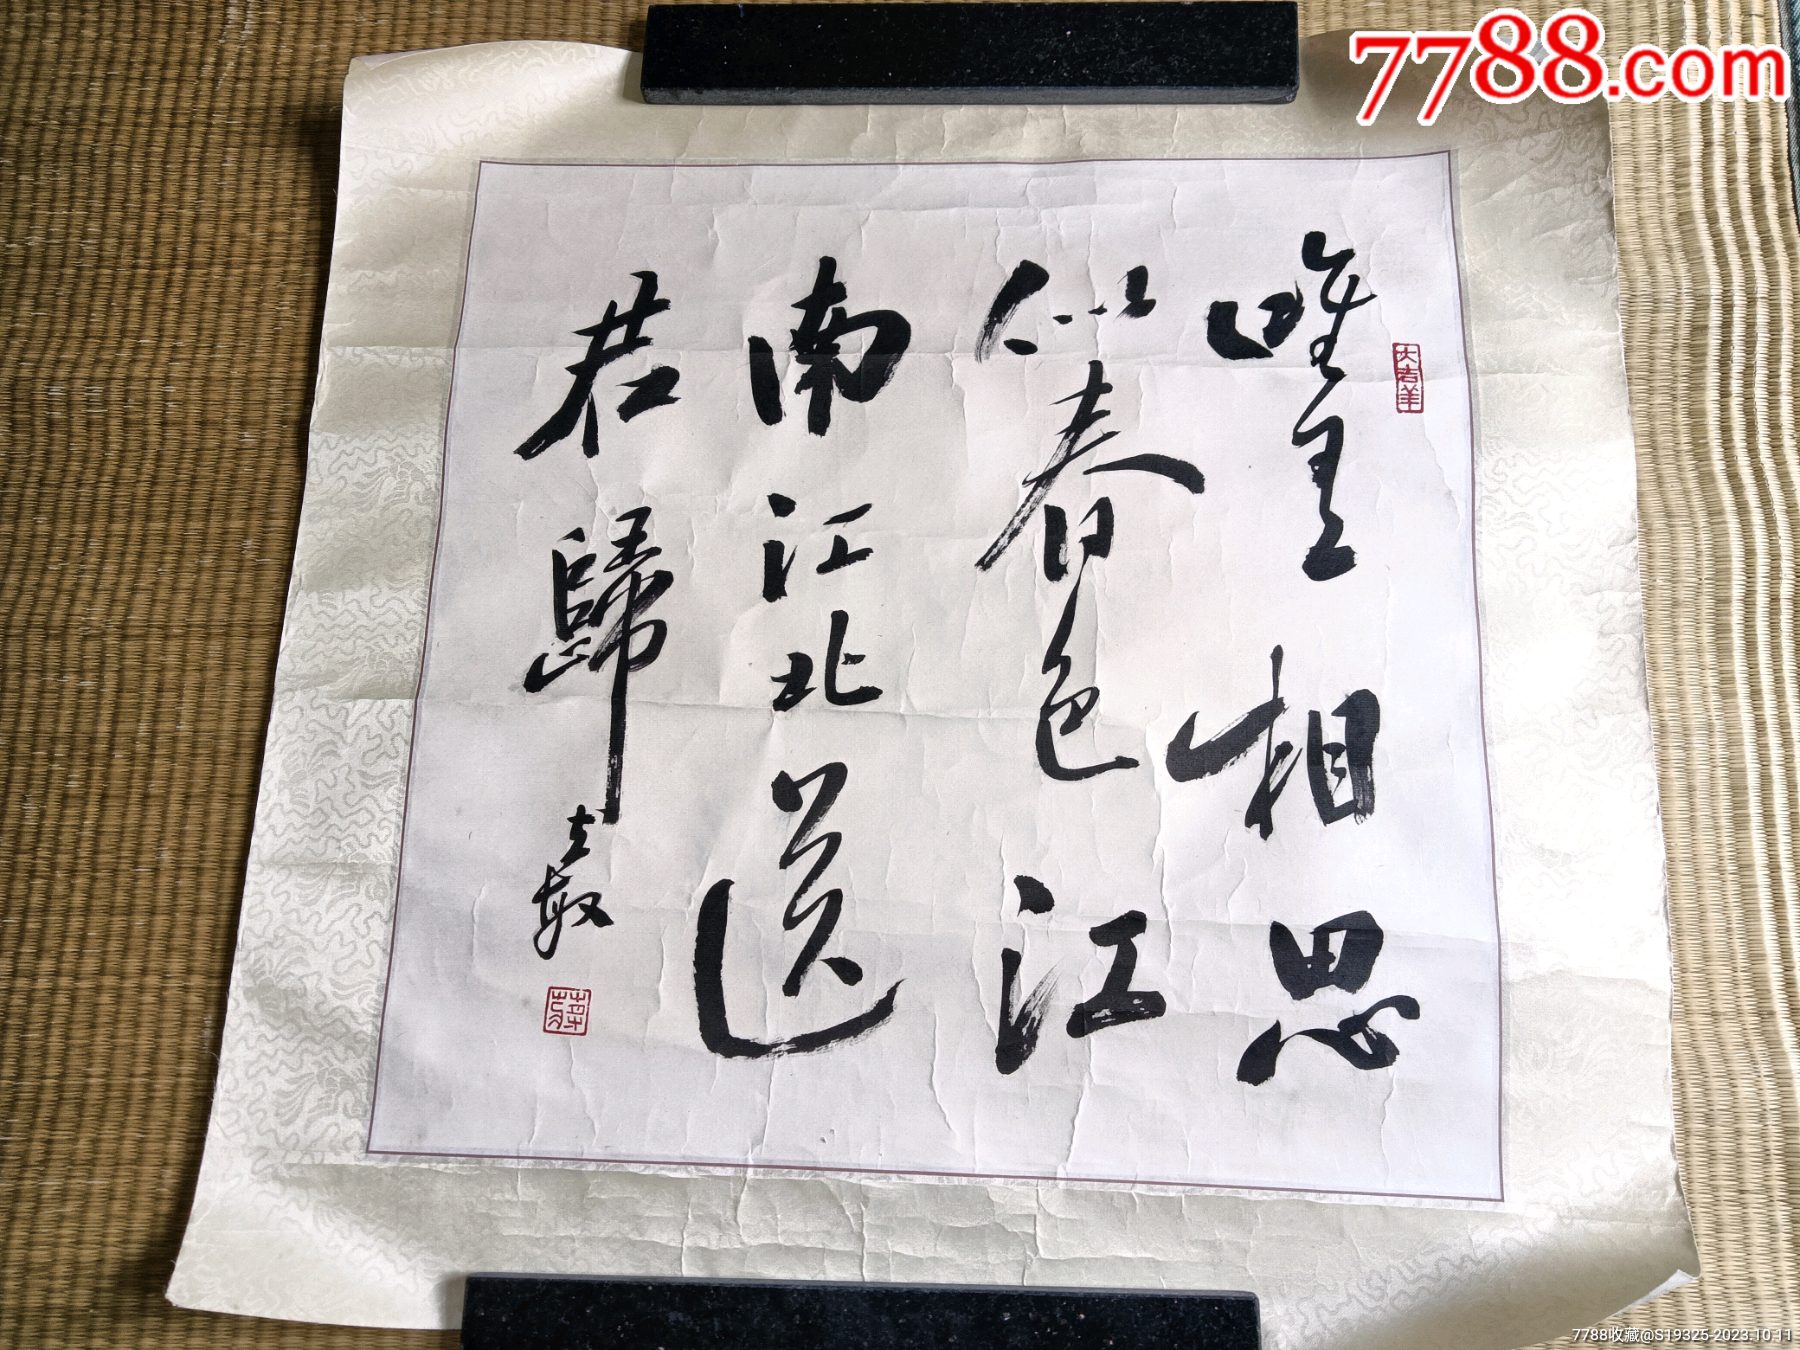 7788.com
大吉羊
唯有相思
似春色江
南江北送
君歸
7788收藏@S19325-2023.10.11